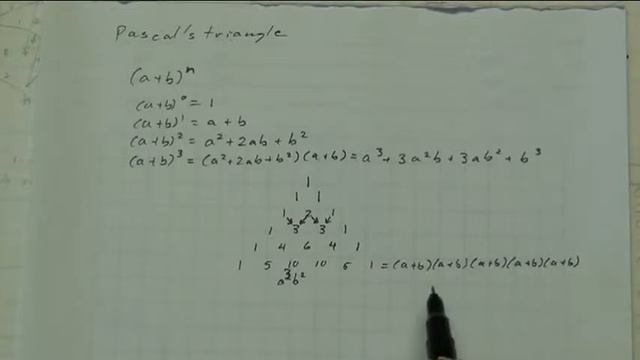 Pascal's triangle
(a+b)ⁿ
(a+b)⁰ = 1
(a+b)¹ = a + b
(a+b)² = a² + 2ab + b²
(a+b)³ = (a²+2ab+b²)(a+b) = a³ + 3a²b + 3ab² + b³
1
1 1
1 2 1
1 3 3 1
1 4 6 4 1
1 5 10 10 5 1 = (a+b)(a+b)(a+b)(a+b)(a+b)
a³b²